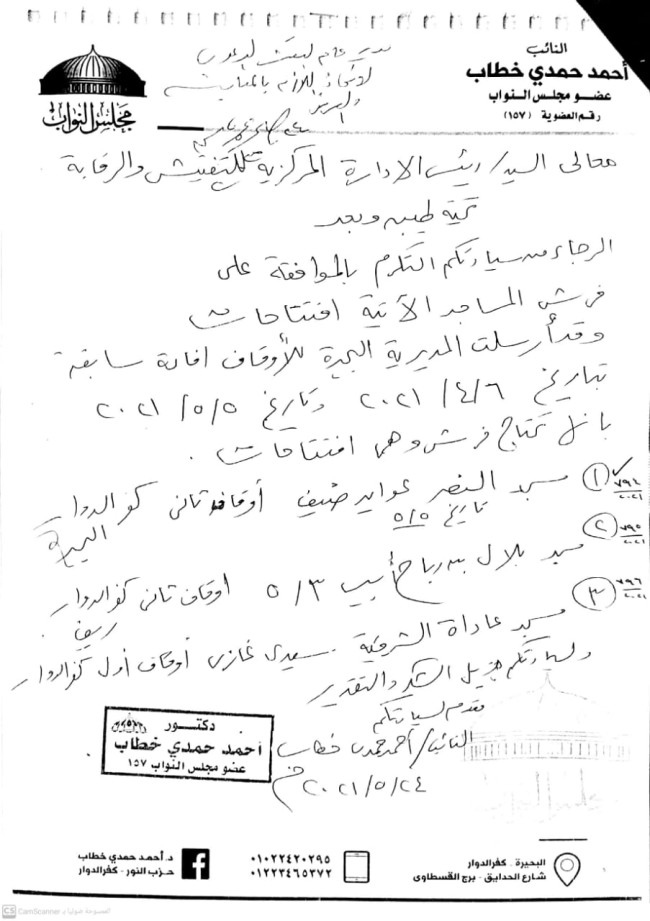 النائب
أحمد حمدي خطاب
عضو مجلس النواب
رقم العضوية (١٥٧)
مجلس النواب
مدير عام
لاتخاذ اللازم
معالى السيد/ رئيس الادارة المركزية للتفتيش والرقابة
تحية طيبه وبعد
الرجاء من سيادتكم التكرم بالموافقة على
فرش المساجد الآتية افتتاحات
وقد أرسلت المديرية البحيرة للأوقاف افادة سابقة
بتاريخ ٢٠٢١/٤/٦ وتاريخ ٢٠٢١/٥/٥
بانها تحتاج فرش وهما افتتاحات .
٧٩٤ / ٢٠٢١
١ مسجد النصر عوايد ضيف أوقاف تانى كفر الدوار
البحيرة
تاريخ ٥/٥
٧٩٥ / ٢٠٢١
٢ مسجد بلال بن رباح أبيب ٥/٣ أوقاف تانى كفر الدوار
٧٩٦ / ٢٠٢١
ريف
٣ مسجد الشرقية سيدى غازى أوقاف أول كفر الدوار
ولسيادتكم جزيل الشكر والتقدير
مقدم لسيادتكم
النائب/ أحمد حمدى خطاب
٢٠٢١/٥/٢٤
دكتور
أحمد حمدي خطاب
عضو مجلس النواب ١٥٧
البحيرة . كفرالدوار
شارع الحدايق - برج القسطاوى
٠١٠٢٢٤٢٠٢٩٥
٠١٢٢٣٤٦٥٣٧٢
د.أحمد حمدي خطاب
حزب النور - كفرالدوار
CS CamScanner الممسوحة ضوئيا بـ